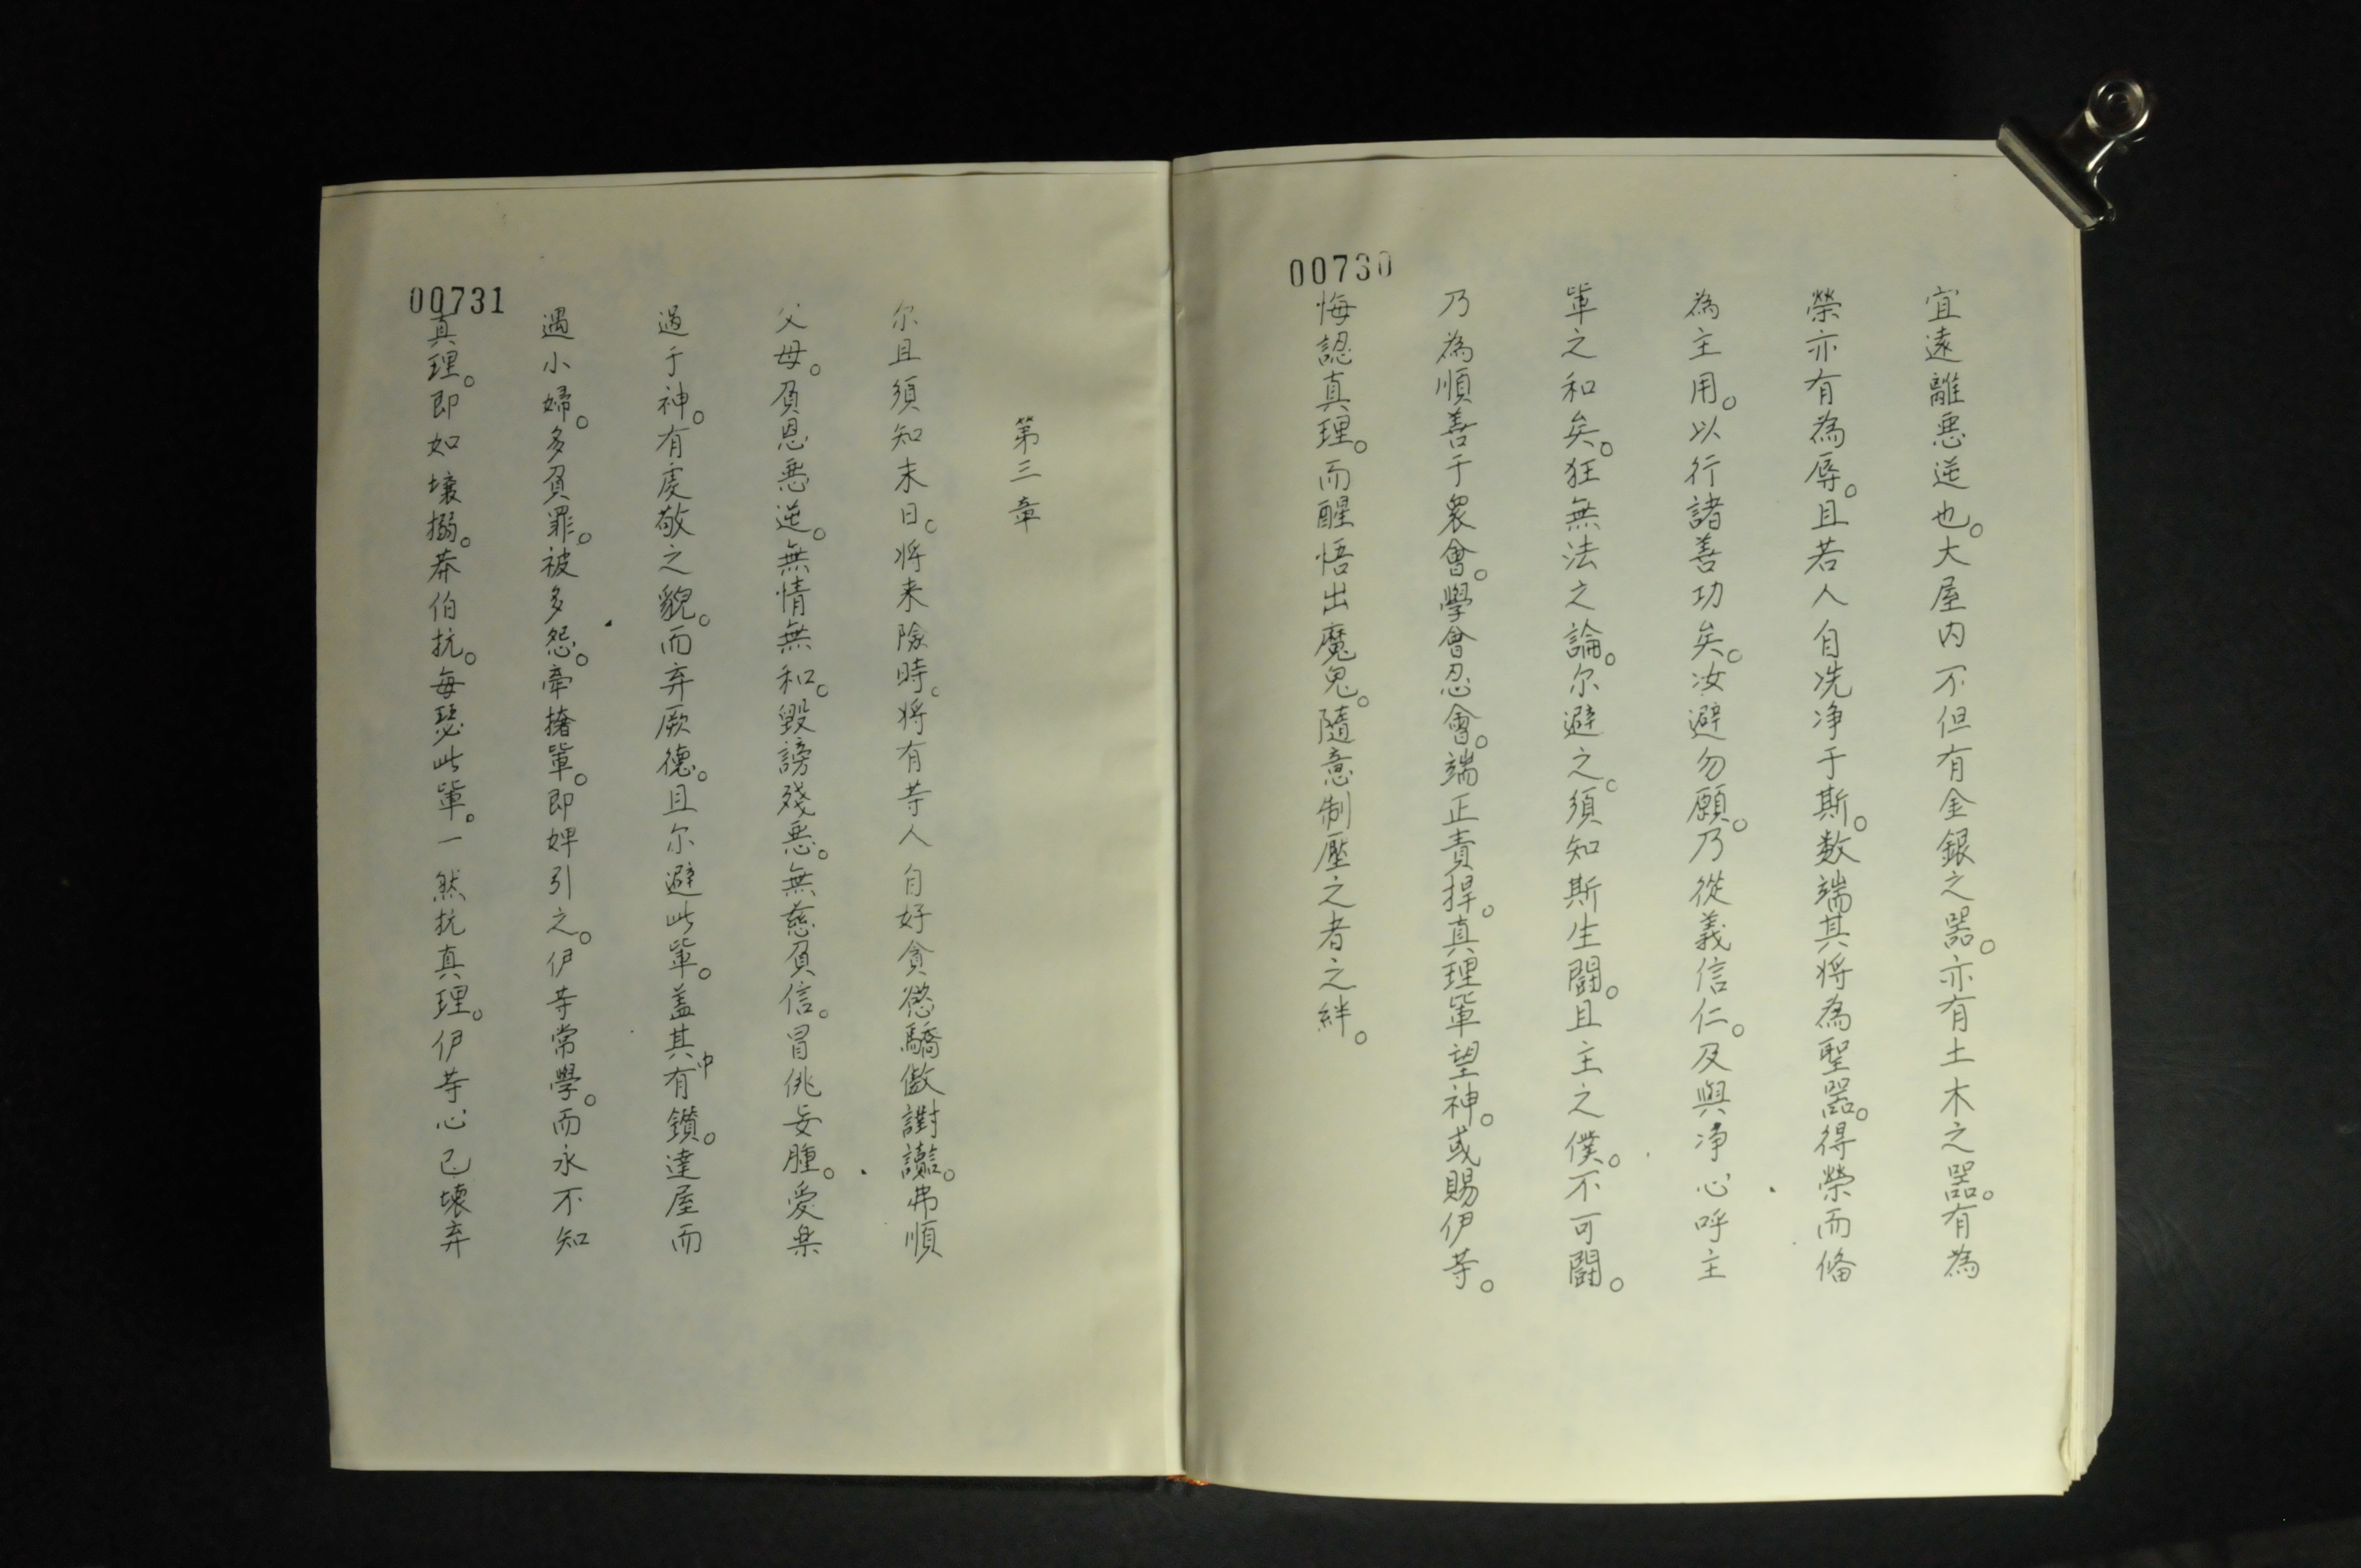 00730
宜遠離悪逆也。大屋内不但有金銀之器。亦有土木之器。有為
榮亦有為辱。且若人自洗净于斯。数端其将為聖器。得榮而俻
為主用。以行諸善功矣。汝避勿願。乃從義信仁。及與净心呼主
軰之和矣。狂無法之論。尔避之。須知斯生鬪。且主之僕。不可鬪。
乃為順善于衆會。學會忍會。端正責捍。真理軰望神。或賜伊䓁。
悔認真理。而醒悟出魔鬼。隨意制壓之者之絆。
00731
第三章
尔且須知末日。将来險時。将有䓁人自好貪慾驕傲謝讟。弗順
父母。負恩悪逆。無情無和。毀謗殘悪。無慈負信。冒佻妄腫。愛樂
過于神。有虔敬之貌。而弃厥德。且尔避此軰。盖其中有鑽。達屋而
遇小婦。多負罪。被多怨。牽撦軰。即婢引之。伊䓁常學。而永不知
真理。即如壤搦。莽伯抗。每瑟此軰。一然抗真理。伊䓁心已壊弃